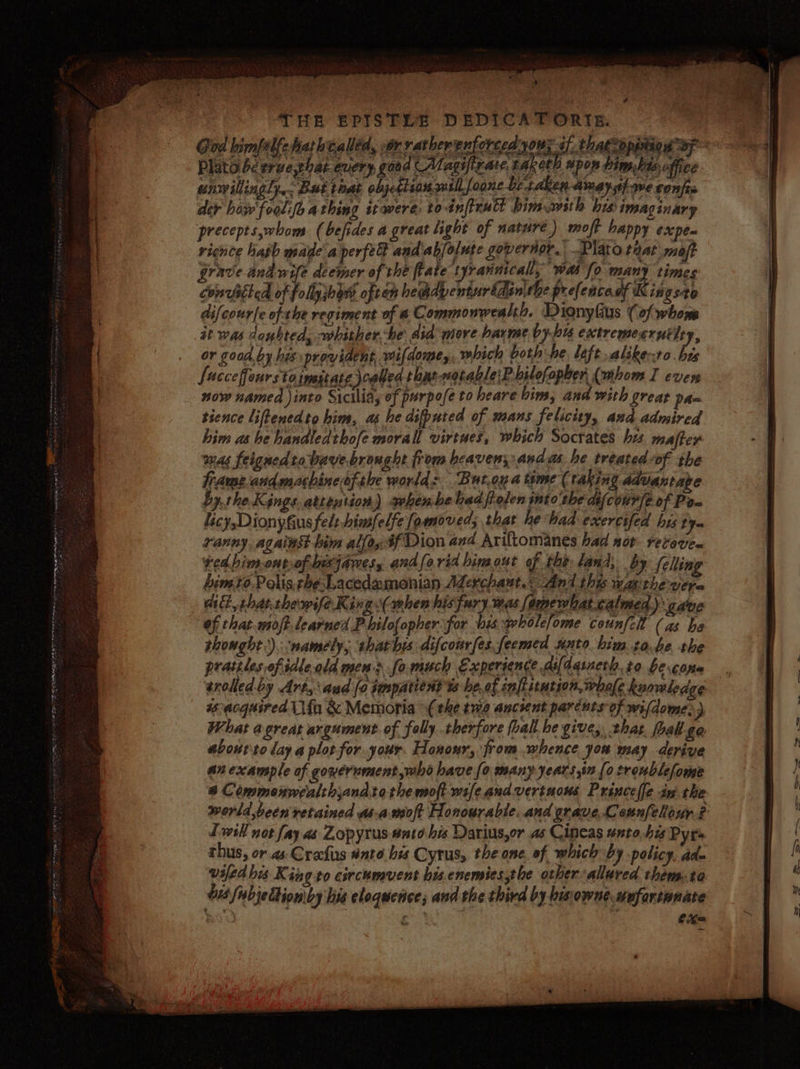 THE EPISTLE DEDICATORIE.
God himſelfe hath called, or rather enforced you; if that opinion of
Plato be true, that every good Magiſtrate, taketh upon him, his office
unwillingly. But that objection will ſoone be taken away, if we conſi-
der how fooliſh a thing it were to inſtruct him with his imaginary
precepts, whom (beſides a great light of nature) moſt happy expe-
rience hath made a perfect and abſolute governor. Plato that moſt
grave and wiſe deemer of the ſtate tyrannicall, was ſo many times
convicted of folly, how often he adventured in the preſence of Kings to
diſcourſe of the regiment of a Commonwealth. Dionyſius (of whom
it was doubted, whither he did more harme by his extreme cruelty,
or good by his provident wiſdome, which both he left alike to his
ſucceſſours to imitate) called that notable Philoſopher (whom I even
now named) into Sicilia, of purpoſe to heare him, and with great pa-
tience liſtened to him, as he diſputed of mans felicity, and admired
him as he handled thoſe morall virtues, which Socrates his maſter
was feigned to have brought from heaven; and as he treated of the
frame and machine of the world: But on a time (taking advantage
by the Kings attention) when he had ſtolen into the diſcourſe of Po-
licy, Dionyſius felt himſelfe ſo moved, that he had exerciſed his ty-
ranny against him alſo, if Dion and Ariſtomanes had not recove-
red him out of his jawes, and ſo rid him out of the land, by ſelling
him to Polis the Lacedæmonian Merchant. And this was the ver-
dict, that the wiſe King (when his fury was ſomewhat calmed) gave
of that moſt learned Philoſopher for his wholeſome counſell (as he
thought) namely, that his diſcourſes ſeemed unto him to be the
prattles of idle old men: ſo much Experience diſdaineth to be con-
trolled by Art, and ſo impatient is he of inſtitution, whoſe knowledge
is acquired Uſu & Memoria (the two ancient parents of wiſdome.)
What a great argument of folly therfore ſhall he give, that ſhall go
about to lay a plot for your Honour, from whence you may derive
an example of government, who have ſo many years, in ſo troubleſome
a Commonwealth, and to the moſt wiſe and vertuous Princeſſe in the
world, been retained as a moſt Honourable and grave Counſellour?
I will not ſay as Zopyrus unto his Darius, or as Cineas unto his Pyr-
rhus, or as Crœſus unto his Cyrus, the one of which by policy ad-
viſed his King to circumvent his enemies, the other allured them to
his ſubjection by his eloquence, and the third by his owne unfortunate
c
exa-